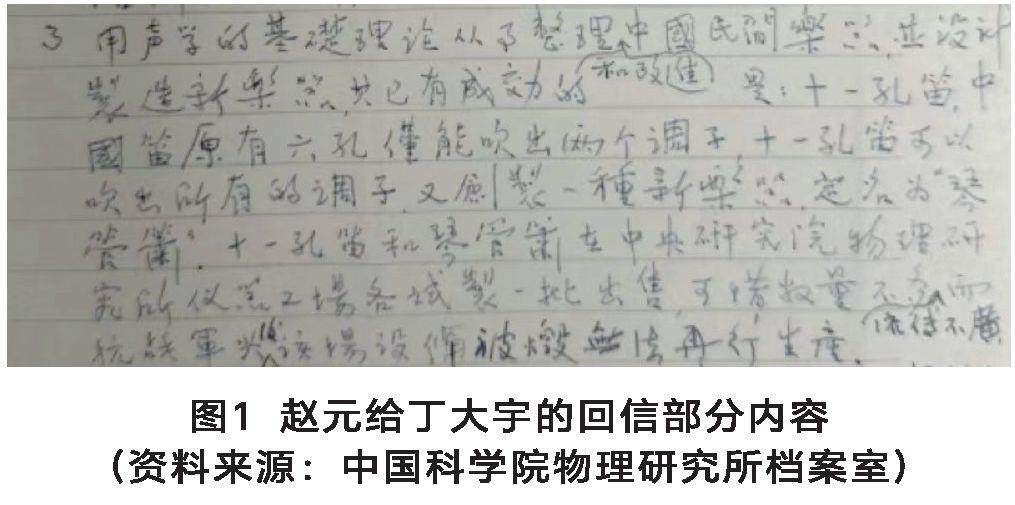 3 用声学的基礎理论从了整理中國民間樂器,並设计
和改進
製造新樂器,其已有成効的 是:十一孔笛,中
國笛原有六孔僅能吹出两个调子,十一孔笛可以
吹出所有的调子,又創製一種新樂器,定名为"琴
管簫".十一孔笛和琴管簫在中央研究院物理研
究所仪器工場各试製一批出售,可惜数量不多而
流传不廣
抗战軍兴後该場设備被燬無法再行生産.
图1 赵元给丁大宇的回信部分内容
（资料来源：中国科学院物理研究所档案室）